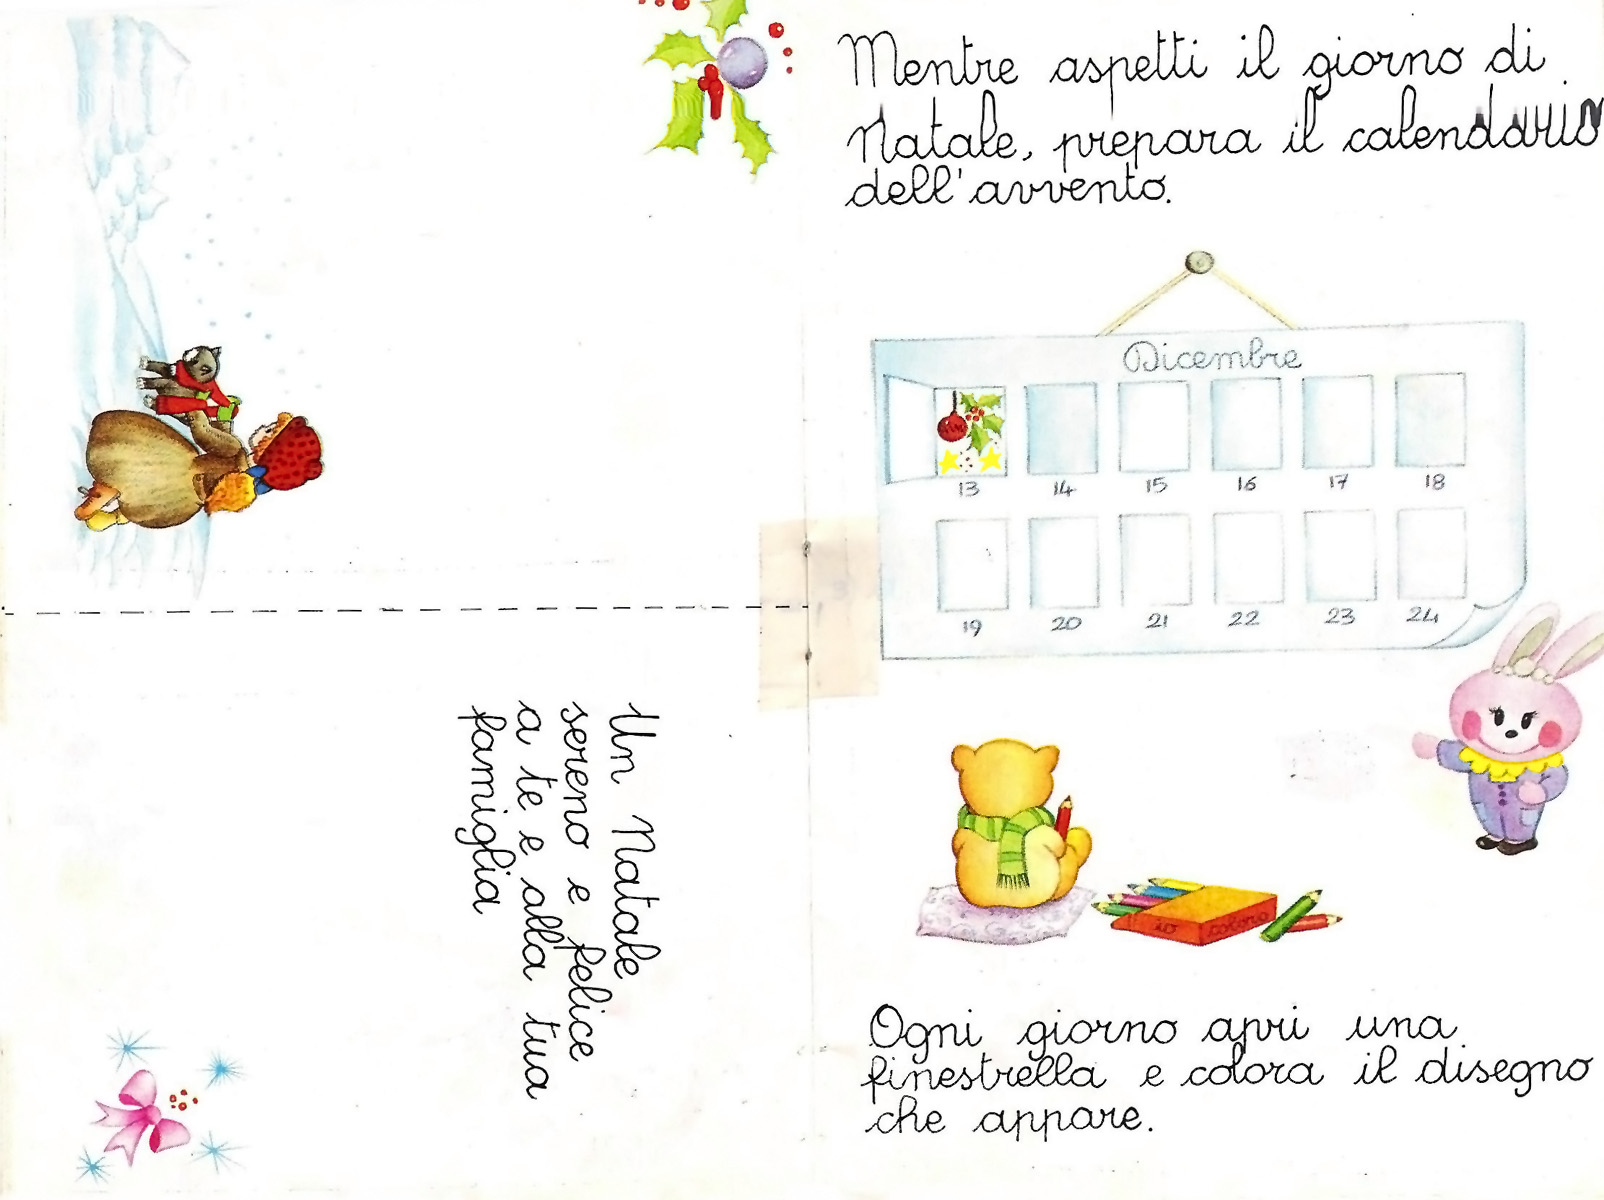 Mentre aspetti il giorno di
Natale, prepara il calendario
dell'avvento.
Dicembre
13 14 15 16 17 18
19 20 21 22 23 24
io coloro
Ogni giorno apri una
finestrella e colora il disegno
che appare.
Un Natale
sereno e felice
a te e alla tua
famiglia